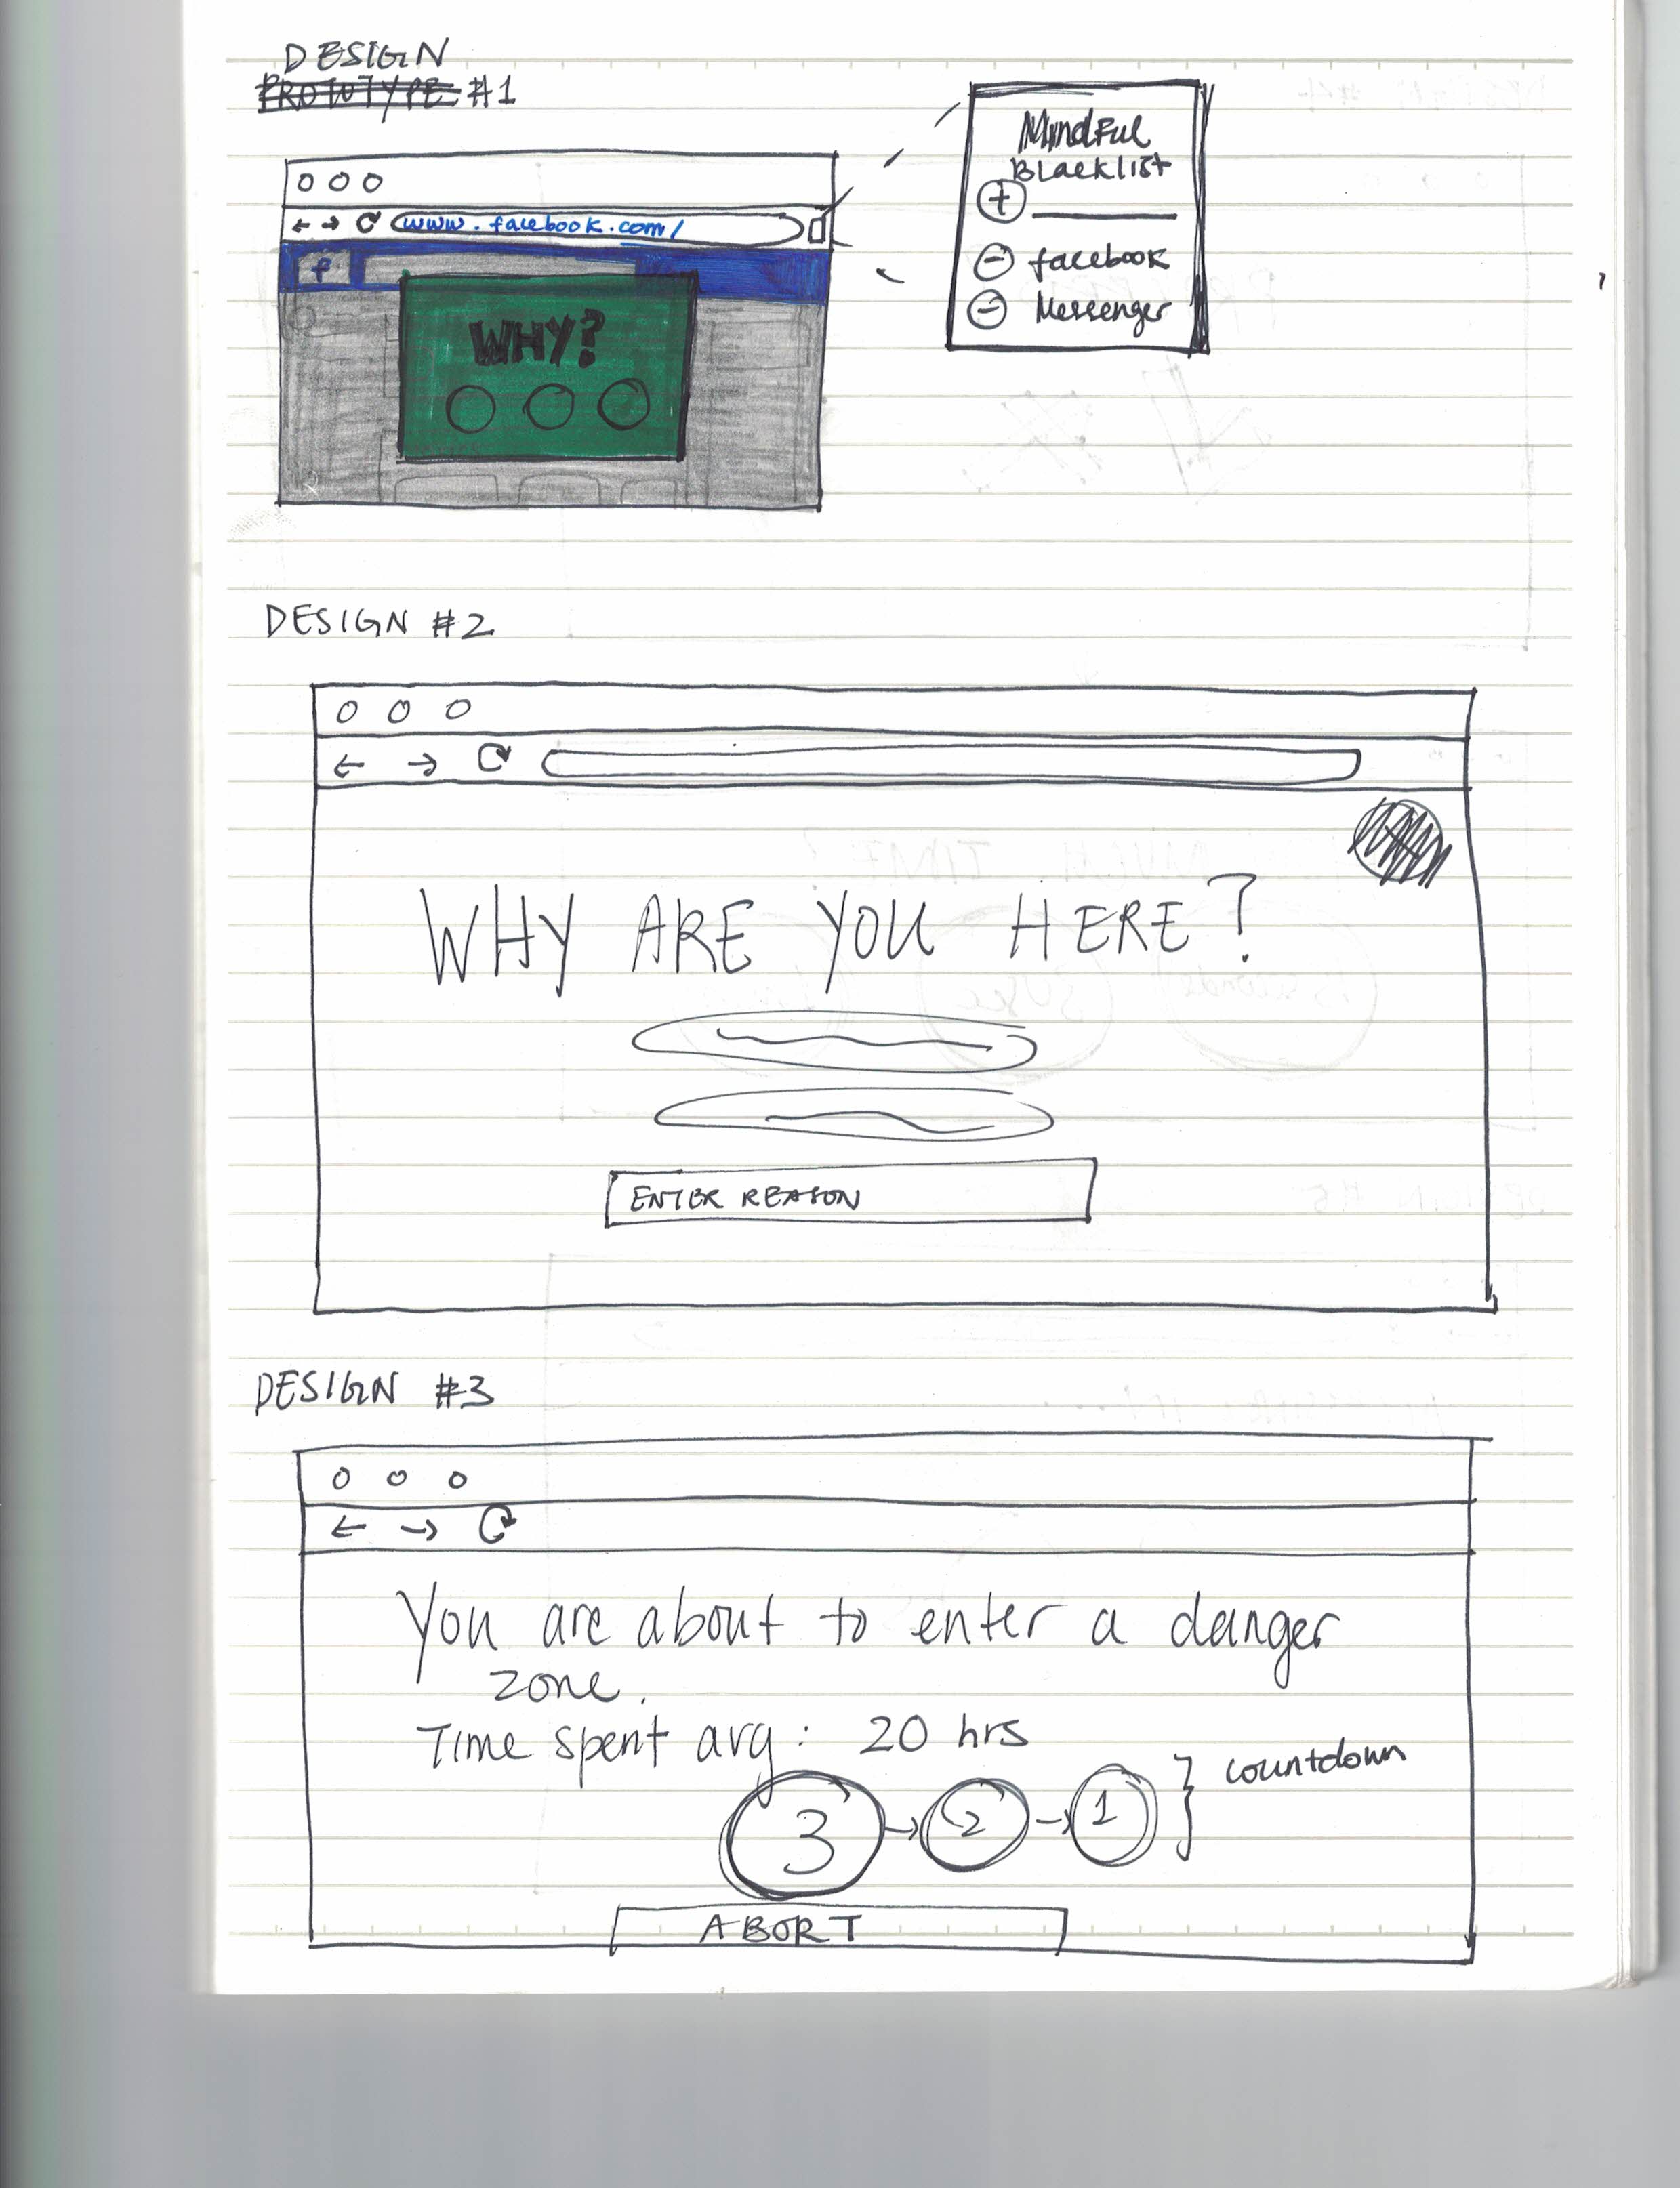 DESIGN
PROTOTYPE #1
www.facebook.com/
f
WHY?
Mindful
Blacklist
+
- facebook
- Messenger
DESIGN #2
WHY ARE YOU HERE?
ENTER REASON
DESIGN #3
You are about to enter a danger
zone.
Time spent avg: 20 hrs
3 → 2 → 1 } countdown
ABORT